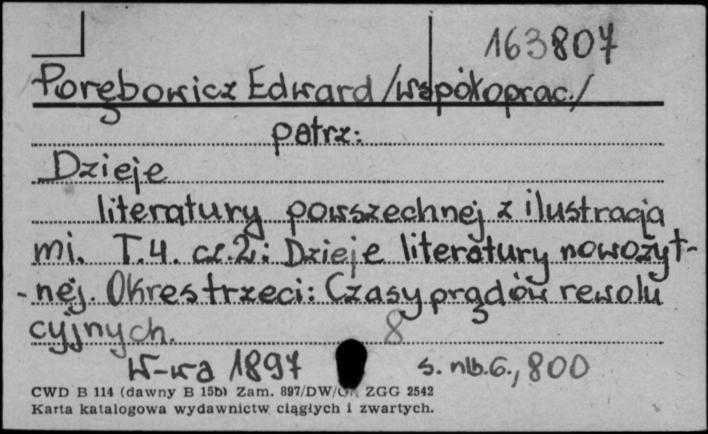 163807
Porębowicz Edward /współoprac./
patrz:
Dzieje
literatury powszechnej z ilustracja
mi. T.4. cz.2: Dzieje literatury nowożyt-
-nej. Okres trzeci: Czasy prądów rewolu
cyjnych. 8
W-wa 1897 s. nlb.6., 800
CWD B 114 (dawny B 15b) Zam. 897/DW/ ZGG 2542
Karta katalogowa wydawnictw ciągłych i zwartych.